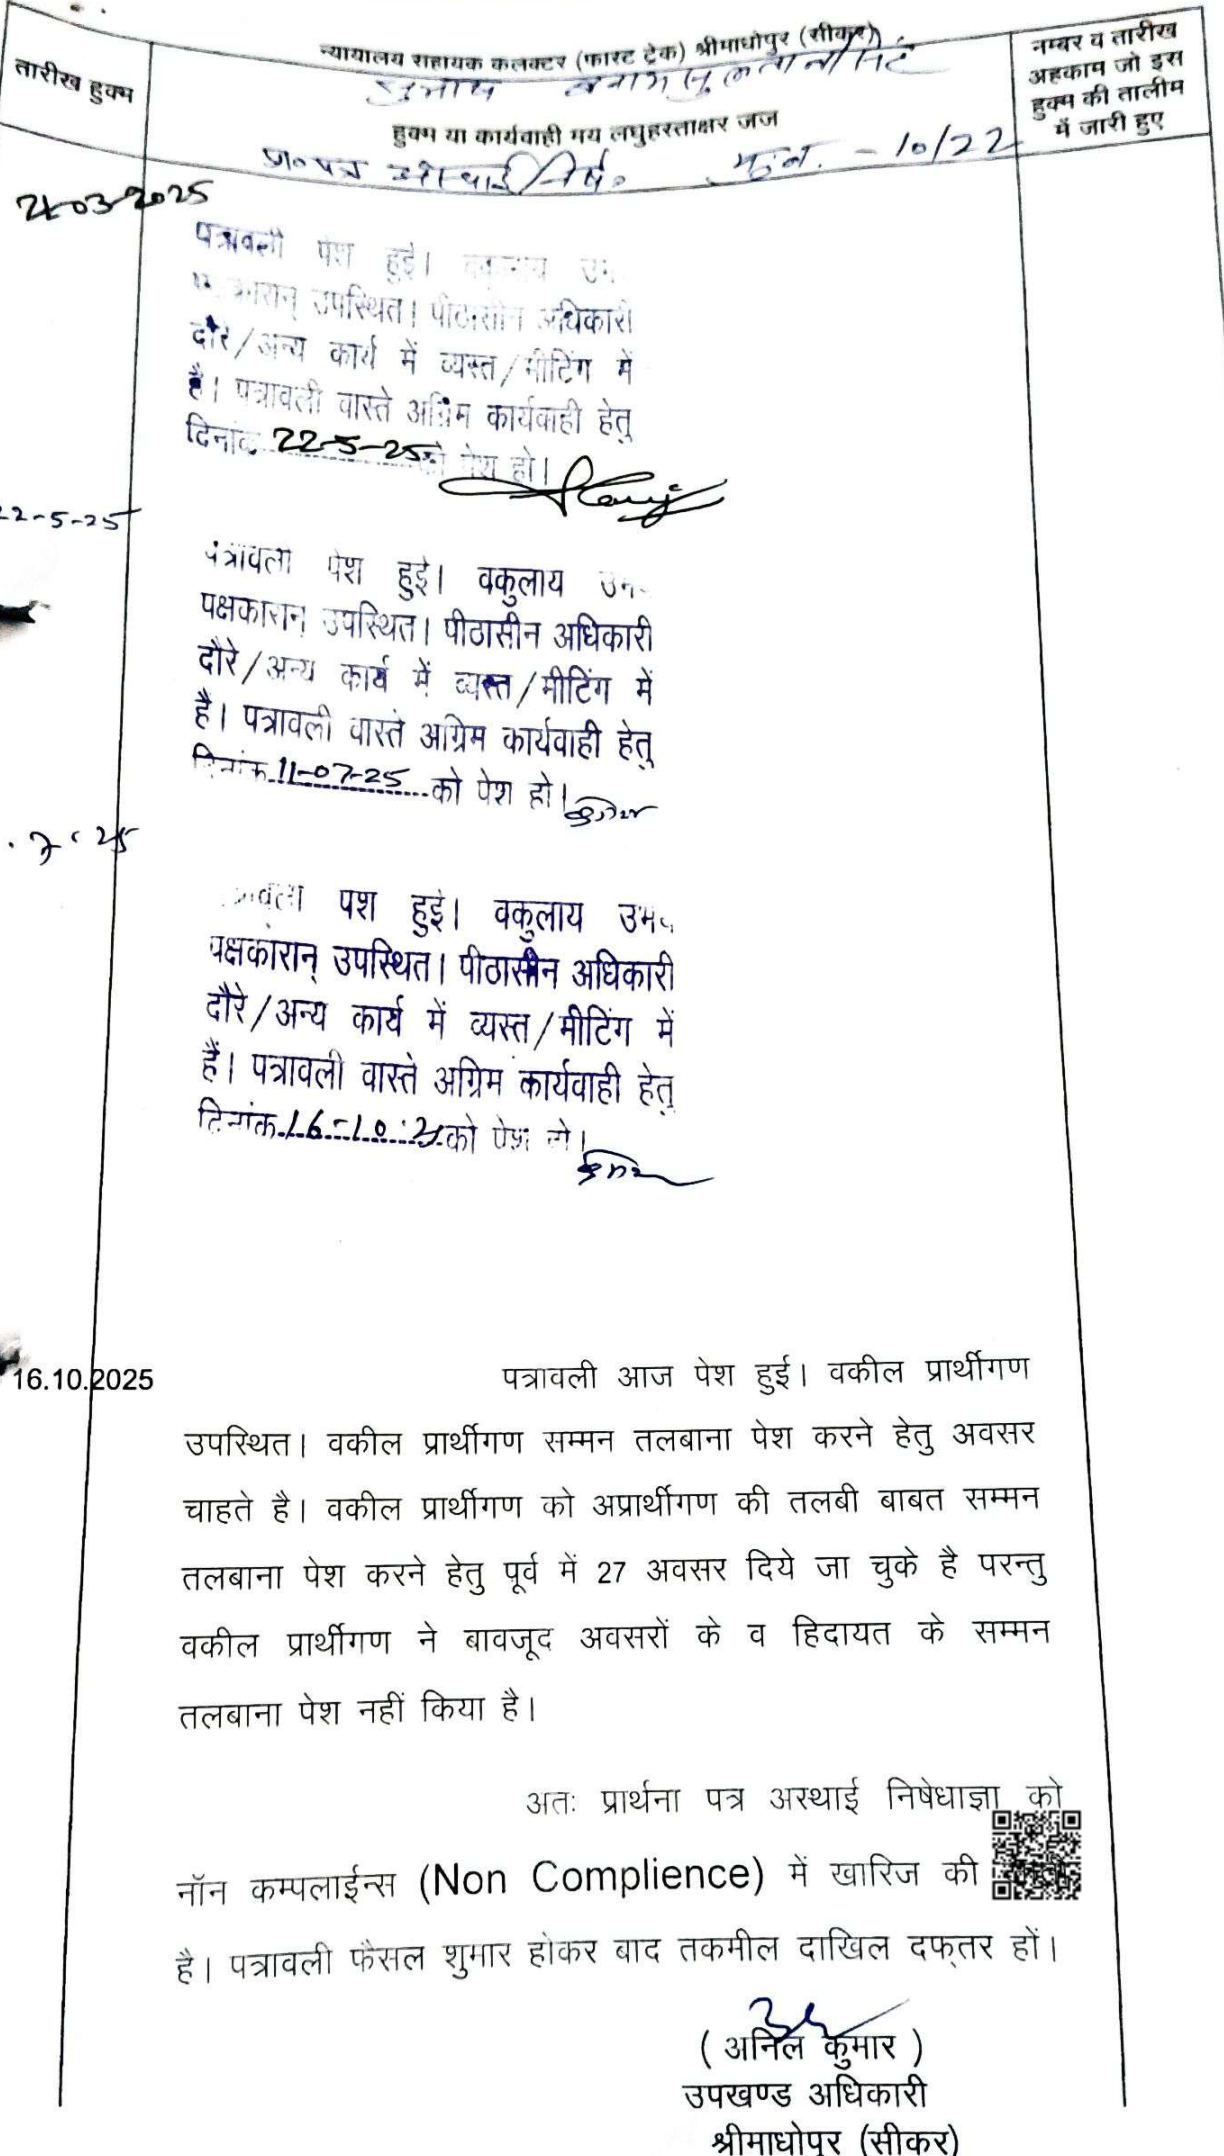 न्यायालय सहायक कलक्टर (फास्ट ट्रेक) श्रीमाधोपुर (सीकर)
तारीख हुक्म
बनाम
हुक्म या कार्यवाही मय लघुहस्ताक्षर जज
नम्बर व तारीख
अहकाम जो इस
हुक्म की तालीम
में जारी हुए
प्रा०पत्र अस्थाई निषे० मु.न. - 10/22
21-03-2025
पत्रावली पेश हुई।
उपस्थित। पीठासीन अधिकारी
दौरे/अन्य कार्य में व्यस्त/मीटिंग में
है। पत्रावली वास्ते अग्रिम कार्यवाही हेतु
दिनांक 22-5-25 को पेश हो।
22-5-25
पत्रावली पेश हुई। वकुलाय
पक्षकारान् उपस्थित। पीठासीन अधिकारी
दौरे/अन्य कार्य में व्यस्त/मीटिंग में
है। पत्रावली वास्ते अग्रिम कार्यवाही हेतु
दिनांक 11-07-25 को पेश हो।
7.25
पेश हुई। वकुलाय उभय
पक्षकारान् उपस्थित। पीठासीन अधिकारी
दौरे/अन्य कार्य में व्यस्त/मीटिंग में
हैं। पत्रावली वास्ते अग्रिम कार्यवाही हेतु
दिनांक 16-10-25 को पेश हो।
16.10.2025
पत्रावली आज पेश हुई। वकील प्रार्थीगण
उपस्थित। वकील प्रार्थीगण सम्मन तलबाना पेश करने हेतु अवसर
चाहते है। वकील प्रार्थीगण को अप्रार्थीगण की तलबी बाबत सम्मन
तलबाना पेश करने हेतु पूर्व में 27 अवसर दिये जा चुके है परन्तु
वकील प्रार्थीगण ने बावजूद अवसरों के व हिदायत के सम्मन
तलबाना पेश नहीं किया है।
अतः प्रार्थना पत्र अस्थाई निषेधाज्ञा को
नॉन कम्पलाईन्स (Non Complience) में खारिज की
है। पत्रावली फैसल शुमार होकर बाद तकमील दाखिल दफ्तर हों।
( अनिल कुमार )
उपखण्ड अधिकारी
श्रीमाधोपुर (सीकर)